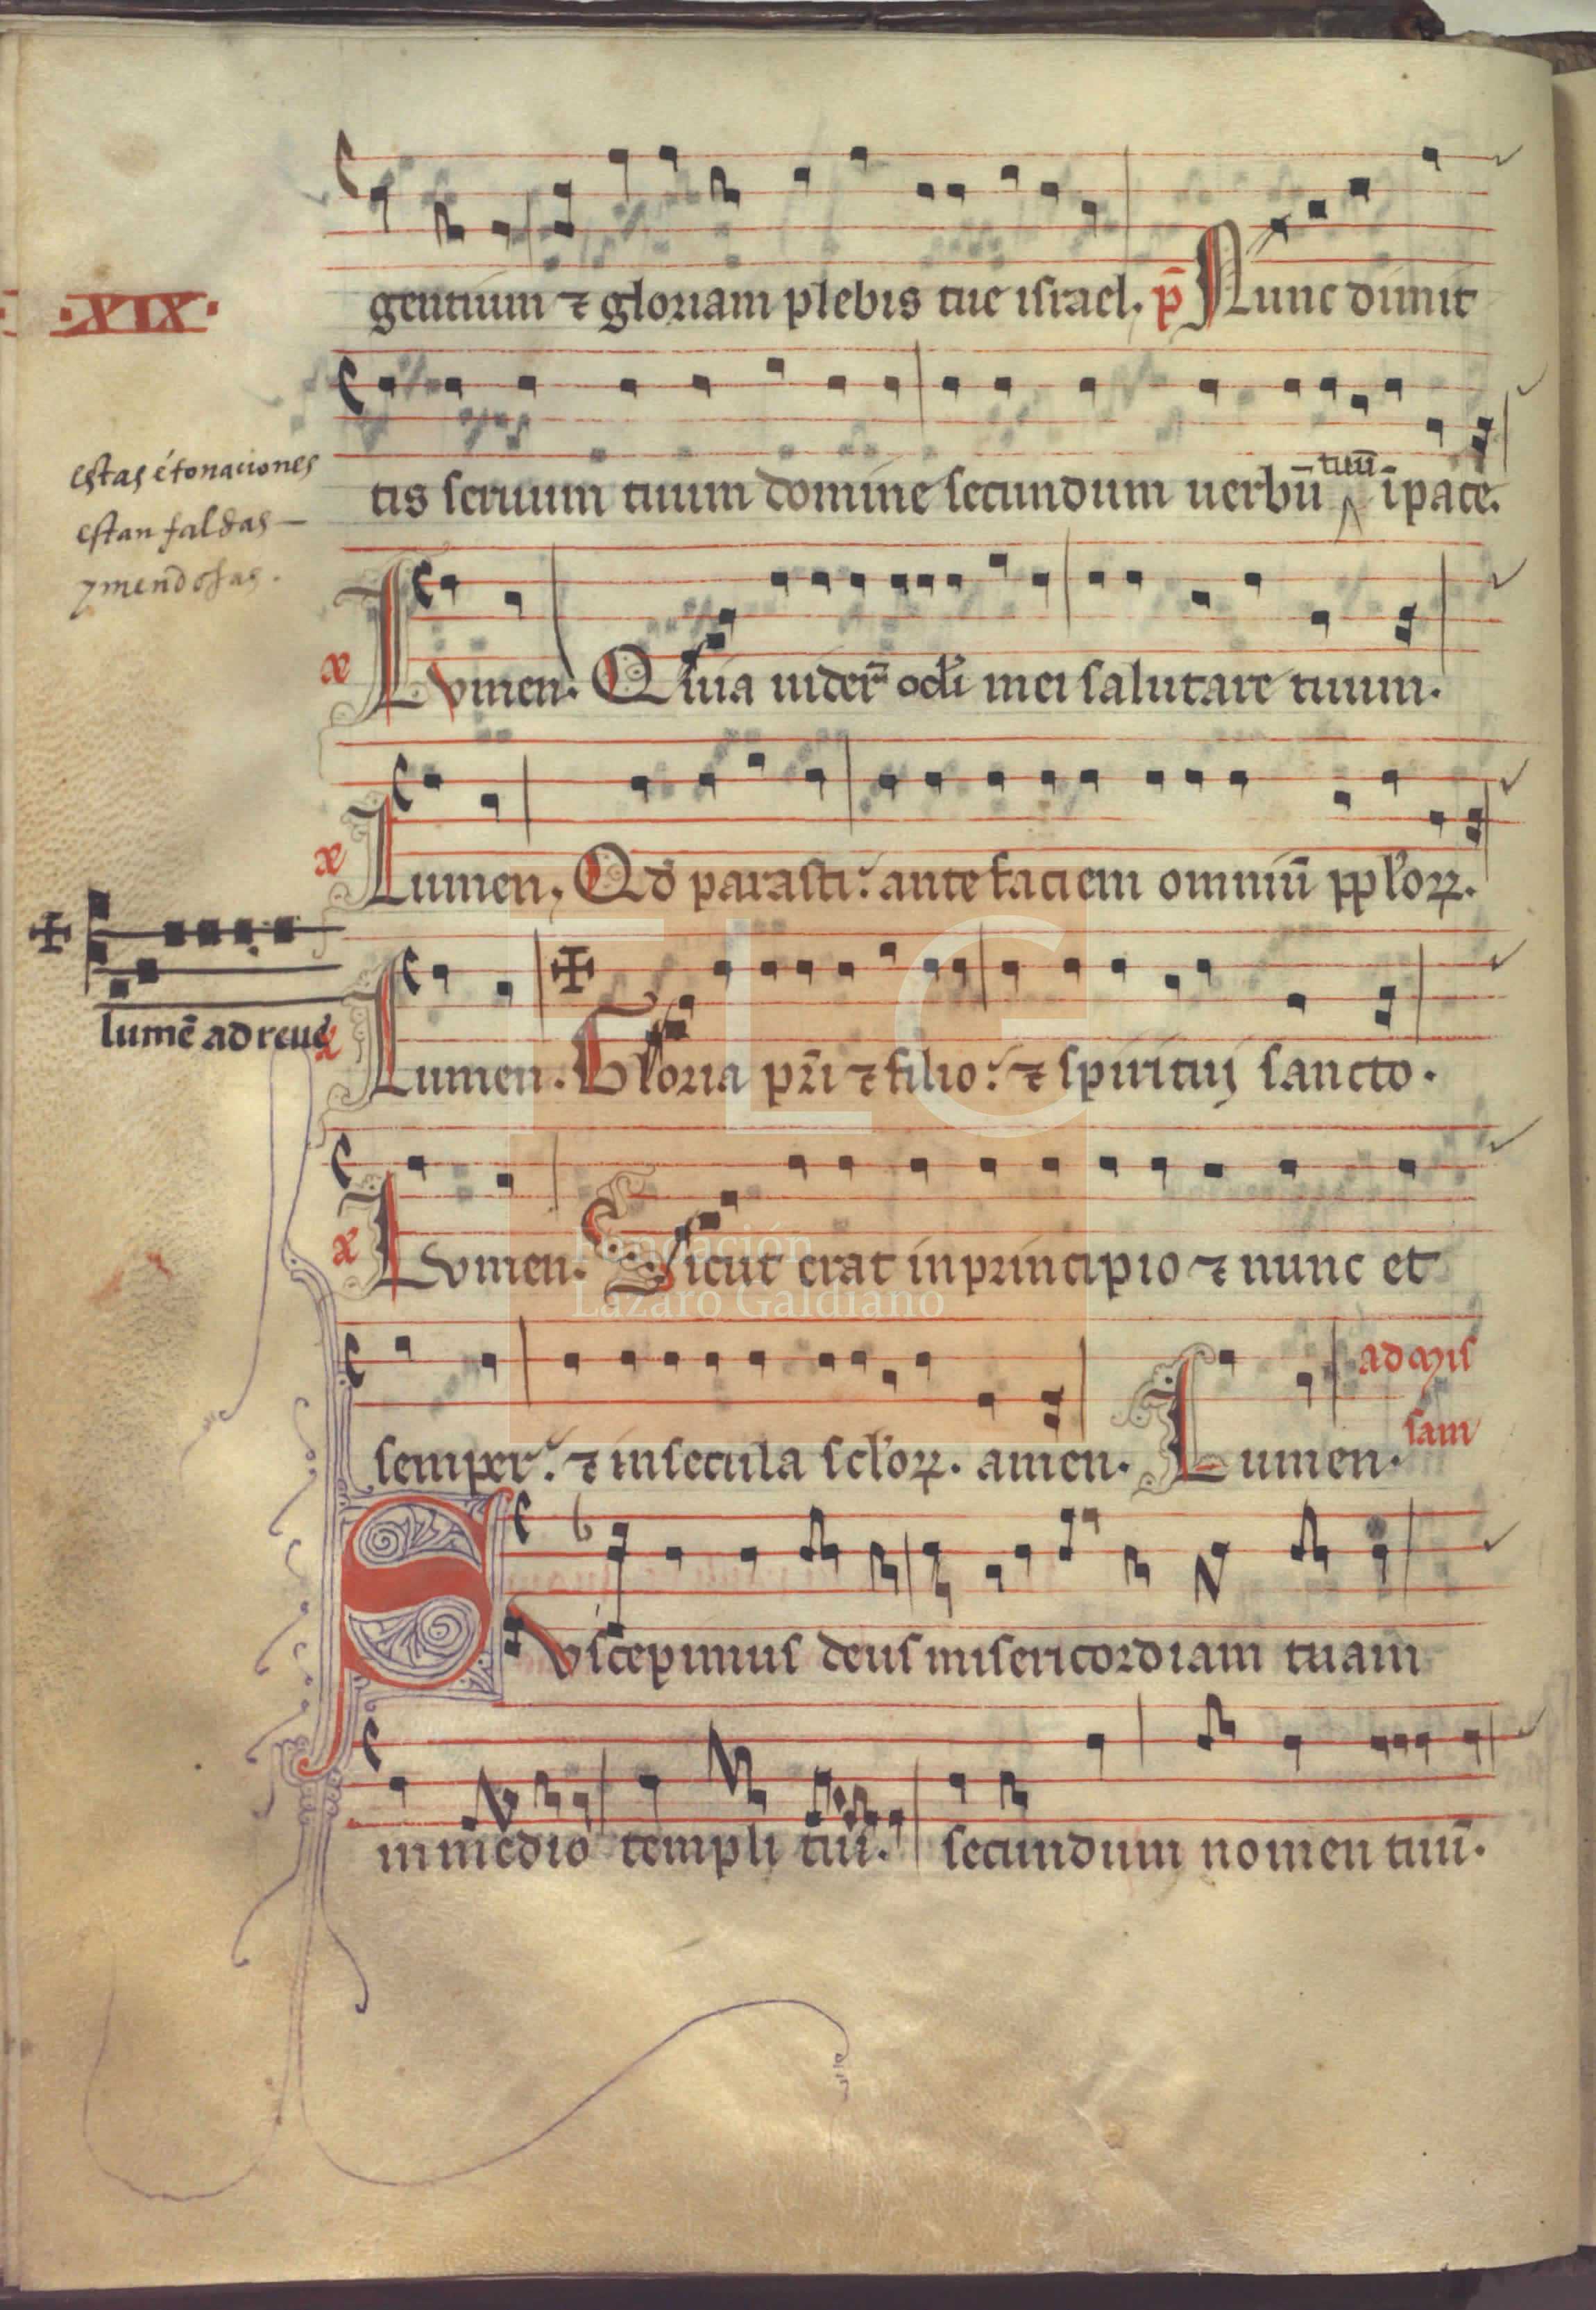 gentium ⁊ gloriam plebis tue israel. p̄ Nunc dimit
·XIX·
tis seruum tuum domine secundum uerbū tuū īpace.
estas étonaciones
estan falsas
y mendosas.
Lvmen. Quia uider̄ ocl̓i mei salutare tuum.
Lumen. Qd̓ parasti: ante faciem omniū ppl̓oꝝ.
lumē ad reue
Lumen. Gloria pr̄i ⁊ filio: ⁊ spirituj sancto.
Lvmen. Sicut erat in principio ⁊ nunc et
semper: ⁊ in secula scl̓oꝝ. amen. Lumen. ad mis
sam
Svscepimus deus misericordiam tuam
in medio templi tui. secundum nomen tuū.
FLG
Fundación
Lázaro Galdiano